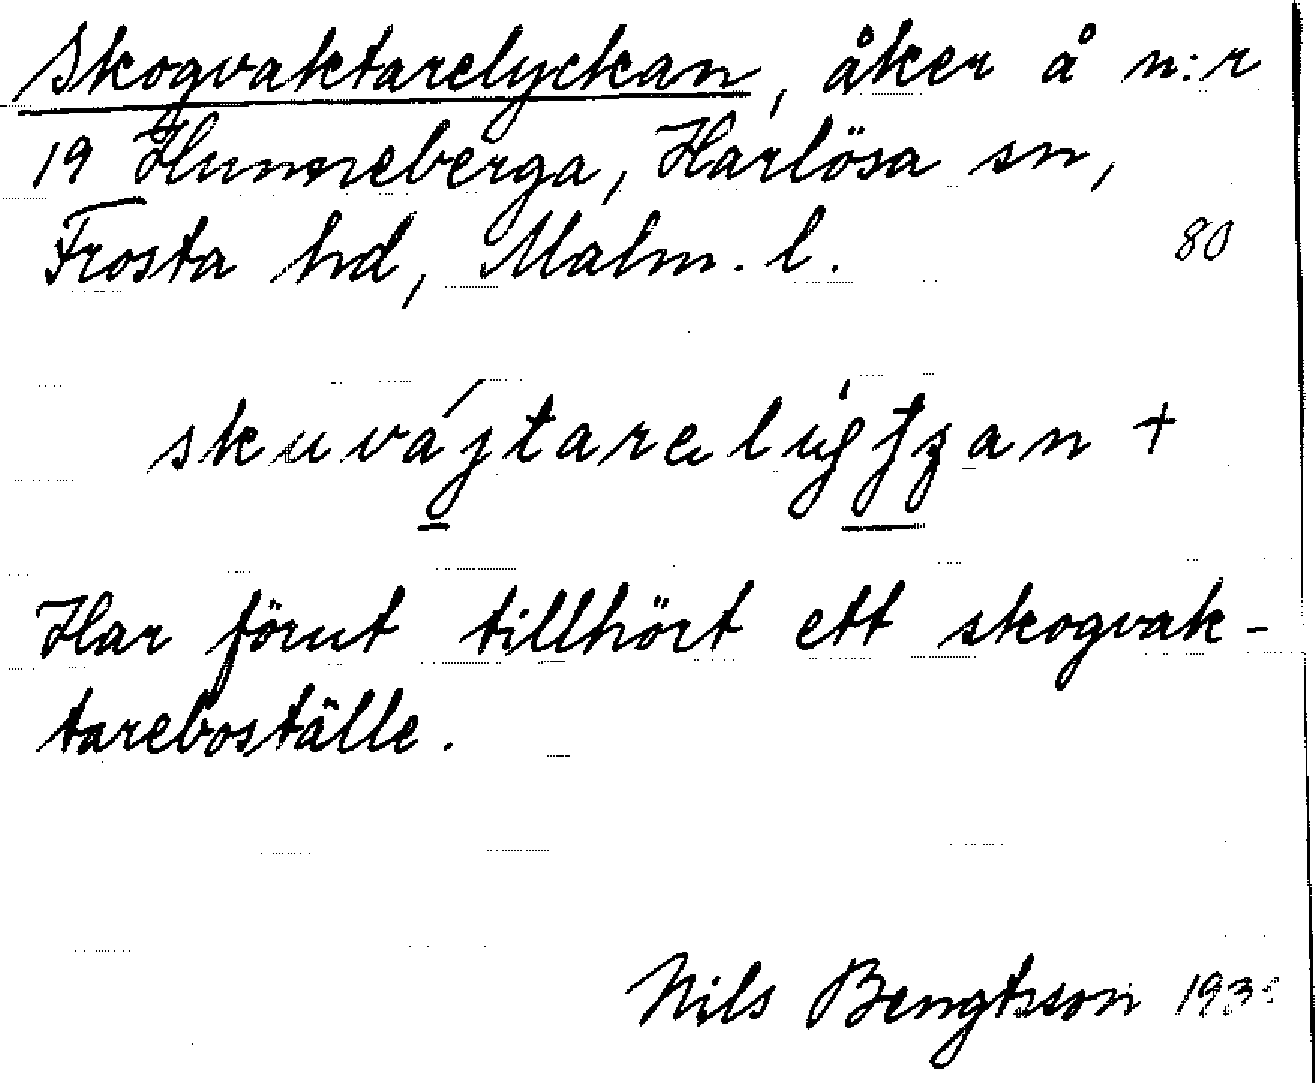 Skogvaktarelyckan, åker å n:r
19 Hunneberga, Harlösa sn,
Frosta hd, Malm. l. 80
Har förut tillhört ett skogvak-
tareboställe.
Nils Bengtsson